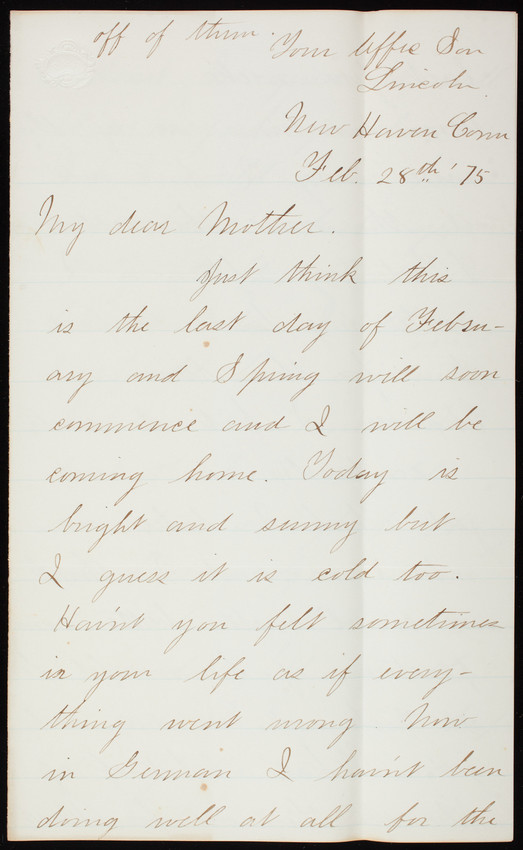 off of them.
Your affec Son
Lincoln
New Haven Conn
Feb. 28th '75
My dear Mother.
Just think this
is the last day of Febru-
ary and Spring will soon
commence and I will be
coming home. Today is
bright and sunny but
I guess it is cold too.
Hav'nt you felt sometimes
in your life as if every-
thing went wrong. Now
in German I hav'nt been
doing well at all for the